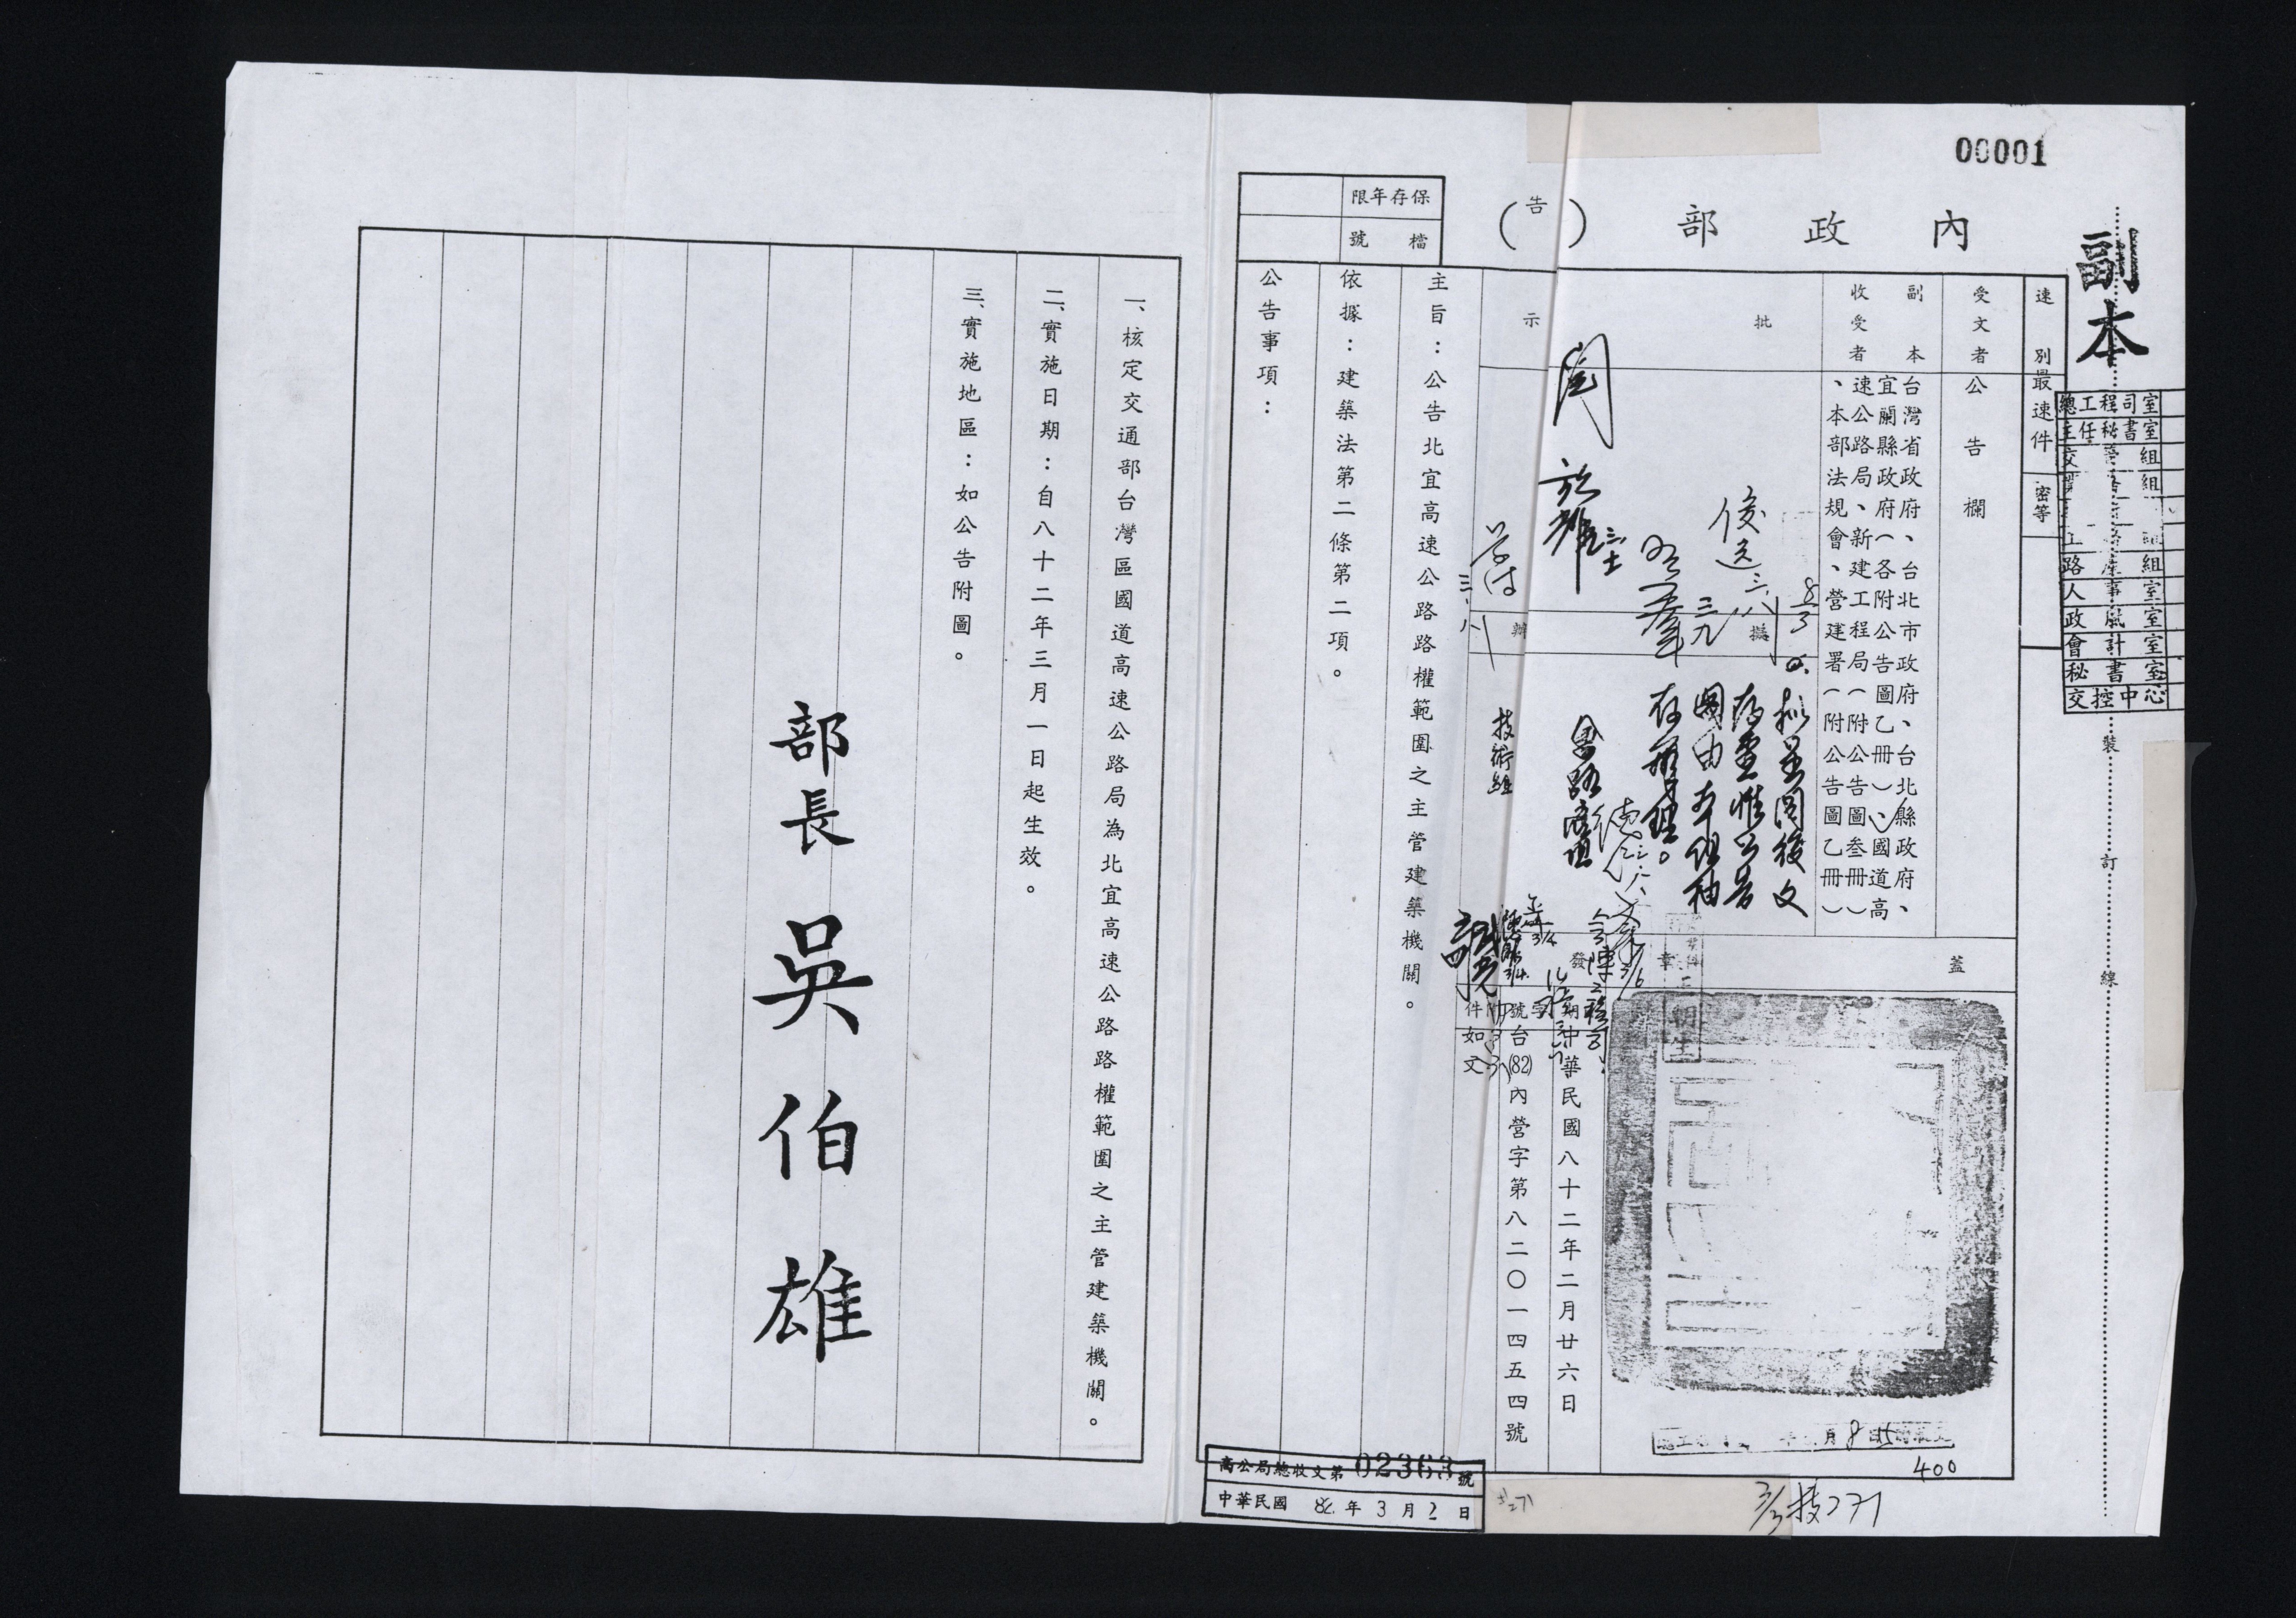 00001
副本
內政部（告）
保存年限
檔號
速別
最速件
密等
受文者
公告欄
副本收受者
台灣省政府、台北市政府、台北縣政府、
宜蘭縣政府（各附公告圖乙冊）、國道高
速公路局、新建工程局（附公告圖叁冊）
、本部法規會、營建署（附公告圖乙冊）
批示
擬辦
閱
擬呈閱後文
存查惟公告
圖由本組抽
存
技術組
蓋章
發
期
中華民國八十二年二月廿六日
字號
台(82)內營字第八二〇一四五四號
附件
如文
主旨：公告北宜高速公路路權範圍之主管建築機關。
依據：建築法第二條第二項。
公告事項：
一、核定交通部台灣區國道高速公路局為北宜高速公路路權範圍之主管建築機關。
二、實施日期：自八十二年三月一日起生效。
三、實施地區：如公告附圖。
部長 吳伯雄
總工程司室
主任秘書室
交 組
組
路產組
人事室
政風室
會計室
秘書室
交控中心
裝訂線
高公局總收文第02363號
中華民國 82 年 3 月 2 日
400
3/3 技271